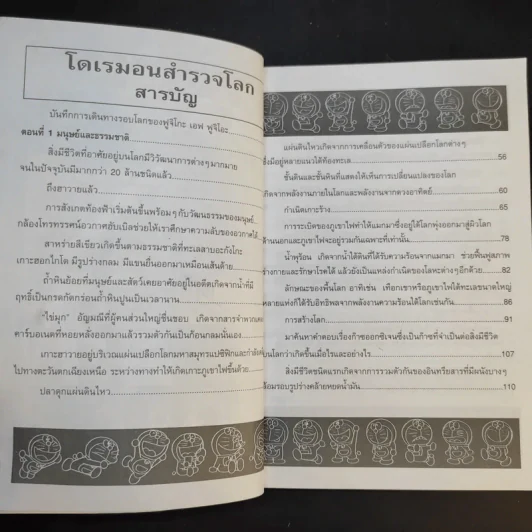 โดเรมอนสำรวจโลก
สารบัญ
บันทึกการเดินทางรอบโลกของฟูจิโกะ เอฟ ฟูจิโกะ
ตอนที่ 1 มนุษย์และธรรมชาติ
สิ่งมีชีวิตที่อาศัยอยู่บนโลกมีวิวัฒนาการต่างๆมากมาย
จนในปัจจุบันมีมากกว่า 20 ล้านชนิดแล้ว
ถึงฮาวายแล้ว
การสังเกตท้องฟ้าเริ่มต้นขึ้นพร้อมๆกับวัฒนธรรมของมนุษย์
กล้องโทรทรรศน์อวกาศฮับเบิลช่วยให้เราศึกษาความลับของอวกาศได้
สาหร่ายสีเขียวเกิดขึ้นตามธรรมชาติที่ทะเลสาบอะกังโกะ
เกาะฮอกไกโด มีรูปร่างกลม มีแขนยื่นออกมาเหมือนเส้นด้าย
ถ้ำหินย้อยที่มนุษย์และสัตว์เคยอาศัยอยู่ในอดีตเกิดจากน้ำที่มี
ฤทธิ์เป็นกรดกัดกร่อนถ้ำหินปูนเป็นเวลานาน
"ไข่มุก" อัญมณีที่ผู้คนส่วนใหญ่ชื่นชอบ เกิดจากสารจำพวก
คาร์บอเนตที่หอยหลั่งออกมาแล้วรวมตัวกันเป็นก้อนกลมนั่นเอง
เกาะฮาวายอยู่บริเวณแผ่นเปลือกโลกมหาสมุทรแปซิฟิกและกำลัง
ไปทางตะวันตกเฉียงเหนือ ระหว่างทางทำให้เกิดเกาะภูเขาไฟขึ้นด้วย
ปลาดุกแผ่นดินไหว
แผ่นดินไหวเกิดจากการเคลื่อนตัวของแผ่นเปลือกโลกต่างๆ
ซึ่งมีอยู่หลายแนวใต้ท้องทะเล 56
ชั้นดินและชั้นหินที่แสดงให้เห็นการเปลี่ยนแปลงของโลก
เกิดจากพลังงานภายในโลกและพลังงานจากดวงอาทิตย์ 60
กำเนิดเกาะร้าง 65
การระเบิดของภูเขาไฟทำให้แมกมาซึ่งอยู่ใต้โลกพุ่งออกมาสู่ผิวโลก
ด้านนอกและภูเขาไฟจะอยู่รวมกันเฉพาะที่เท่านั้น 78
น้ำพุร้อน เกิดจากน้ำใต้ดินที่ได้รับความร้อนจากแมกมา ช่วยฟื้นฟูสภาพ
ร่างกายและรักษาโรคได้ แล้วยังเป็นแหล่งกำเนิดของโลหะต่างๆอีกด้วย 82
ลักษณะของพื้นโลก อาทิเช่น เทือกเขาหรือภูเขาไฟใต้ทะเลขนาดใหญ่
หลายแห่งก็ได้รับอิทธิพลจากพลังงานความร้อนใต้โลกเช่นกัน 86
การสร้างโลก 91
มาค้นหาคำตอบเรื่องก๊าซออกซิเจนซึ่งเป็นก๊าซที่จำเป็นต่อสิ่งมีชีวิต
บนโลกว่าเกิดขึ้นเมื่อไรและอย่างไร 107
สิ่งมีชีวิตชนิดแรกเกิดจากการรวมตัวกันของอินทรียสารที่มีผนังบางๆ
ล้อมรอบรูปร่างคล้ายหยดน้ำมัน 110